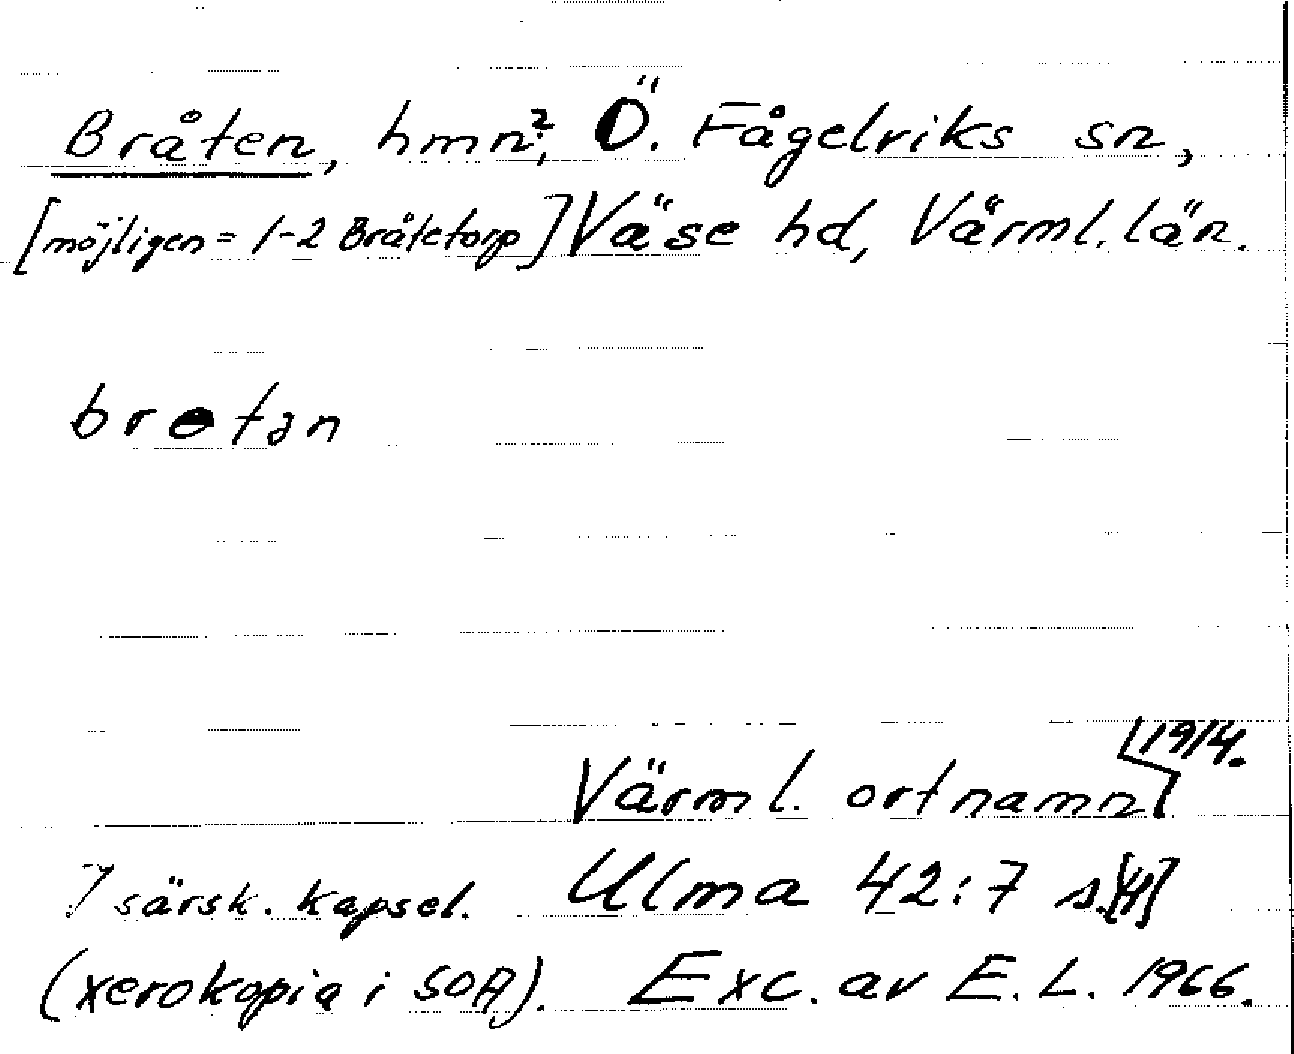 Bråten, hmn?, Ö. Fågelviks sn,
[möjligen = 1-2 Bråtetorp] Väse hd, Värml. län.
bretən
1914.
Värml. ortnamn
I särsk. kapsel. Ulma 42:7 s.[4]
(xerokopia i SOA). Exc. av E. L. 1966.